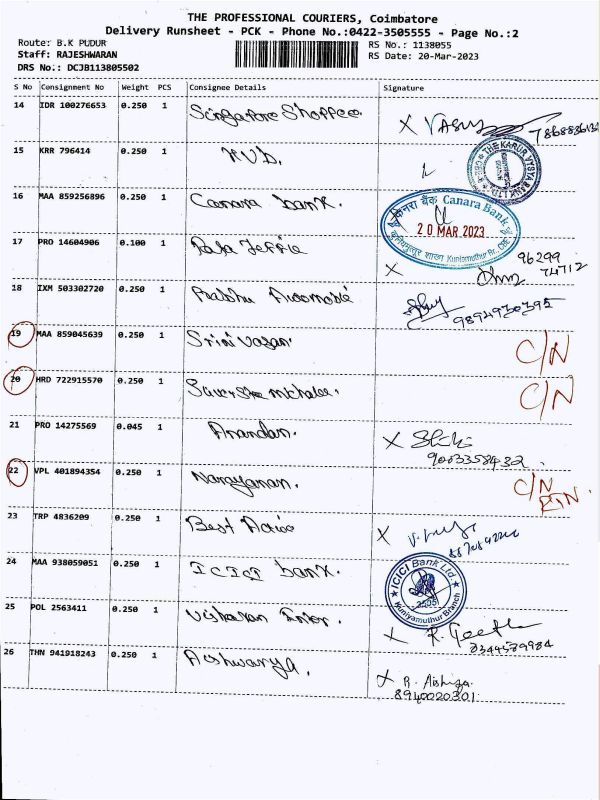 THE PROFESSIONAL COURIERS, Coimbatore
Delivery Runsheet - PCK - Phone No.:0422-3505555 - Page No.:2
Route: B.K PUDUR
Staff: RAJESHWARAN
DRS No.: DCJB113805502
RS No.: 1138055
RS Date: 20-Mar-2023
S No Consignment No Weight PCS Consignee Details Signature
14 IDR 100276653 0.250 1 Singapore Shoppee. X VASU
15 KRR 796414 0.250 1 KVB. THE KARUR VYSYA BANK LTD
16 MAA 859256896 0.250 1 Canara bank. केनरा बैंक Canara Bank
20 MAR 2023
Kuniamuthur Br. CBE
17 PRO 14604906 0.100 1 X 96299
74712
18 IXM 503302720 0.250 1 Prabhu 9894930395
19 MAA 859045639 0.250 1 Srinivasan. C/N
20 HRD 722915570 0.250 1 C/N
21 PRO 14275569 0.045 1 Anandan. X
9003358432
22 VPL 401894354 0.250 1 Narayanan. C/N
23 TRP 4836209 0.250 1 Best X
24 MAA 938059051 0.250 1 ICICI bank. ICICI Bank Ltd.
Kuniyamuthur Branch
25 POL 2563411 0.250 1 X R. Geetha
8344589984
26 THN 941918243 0.250 1 Aishwarya. X R.
8940020301